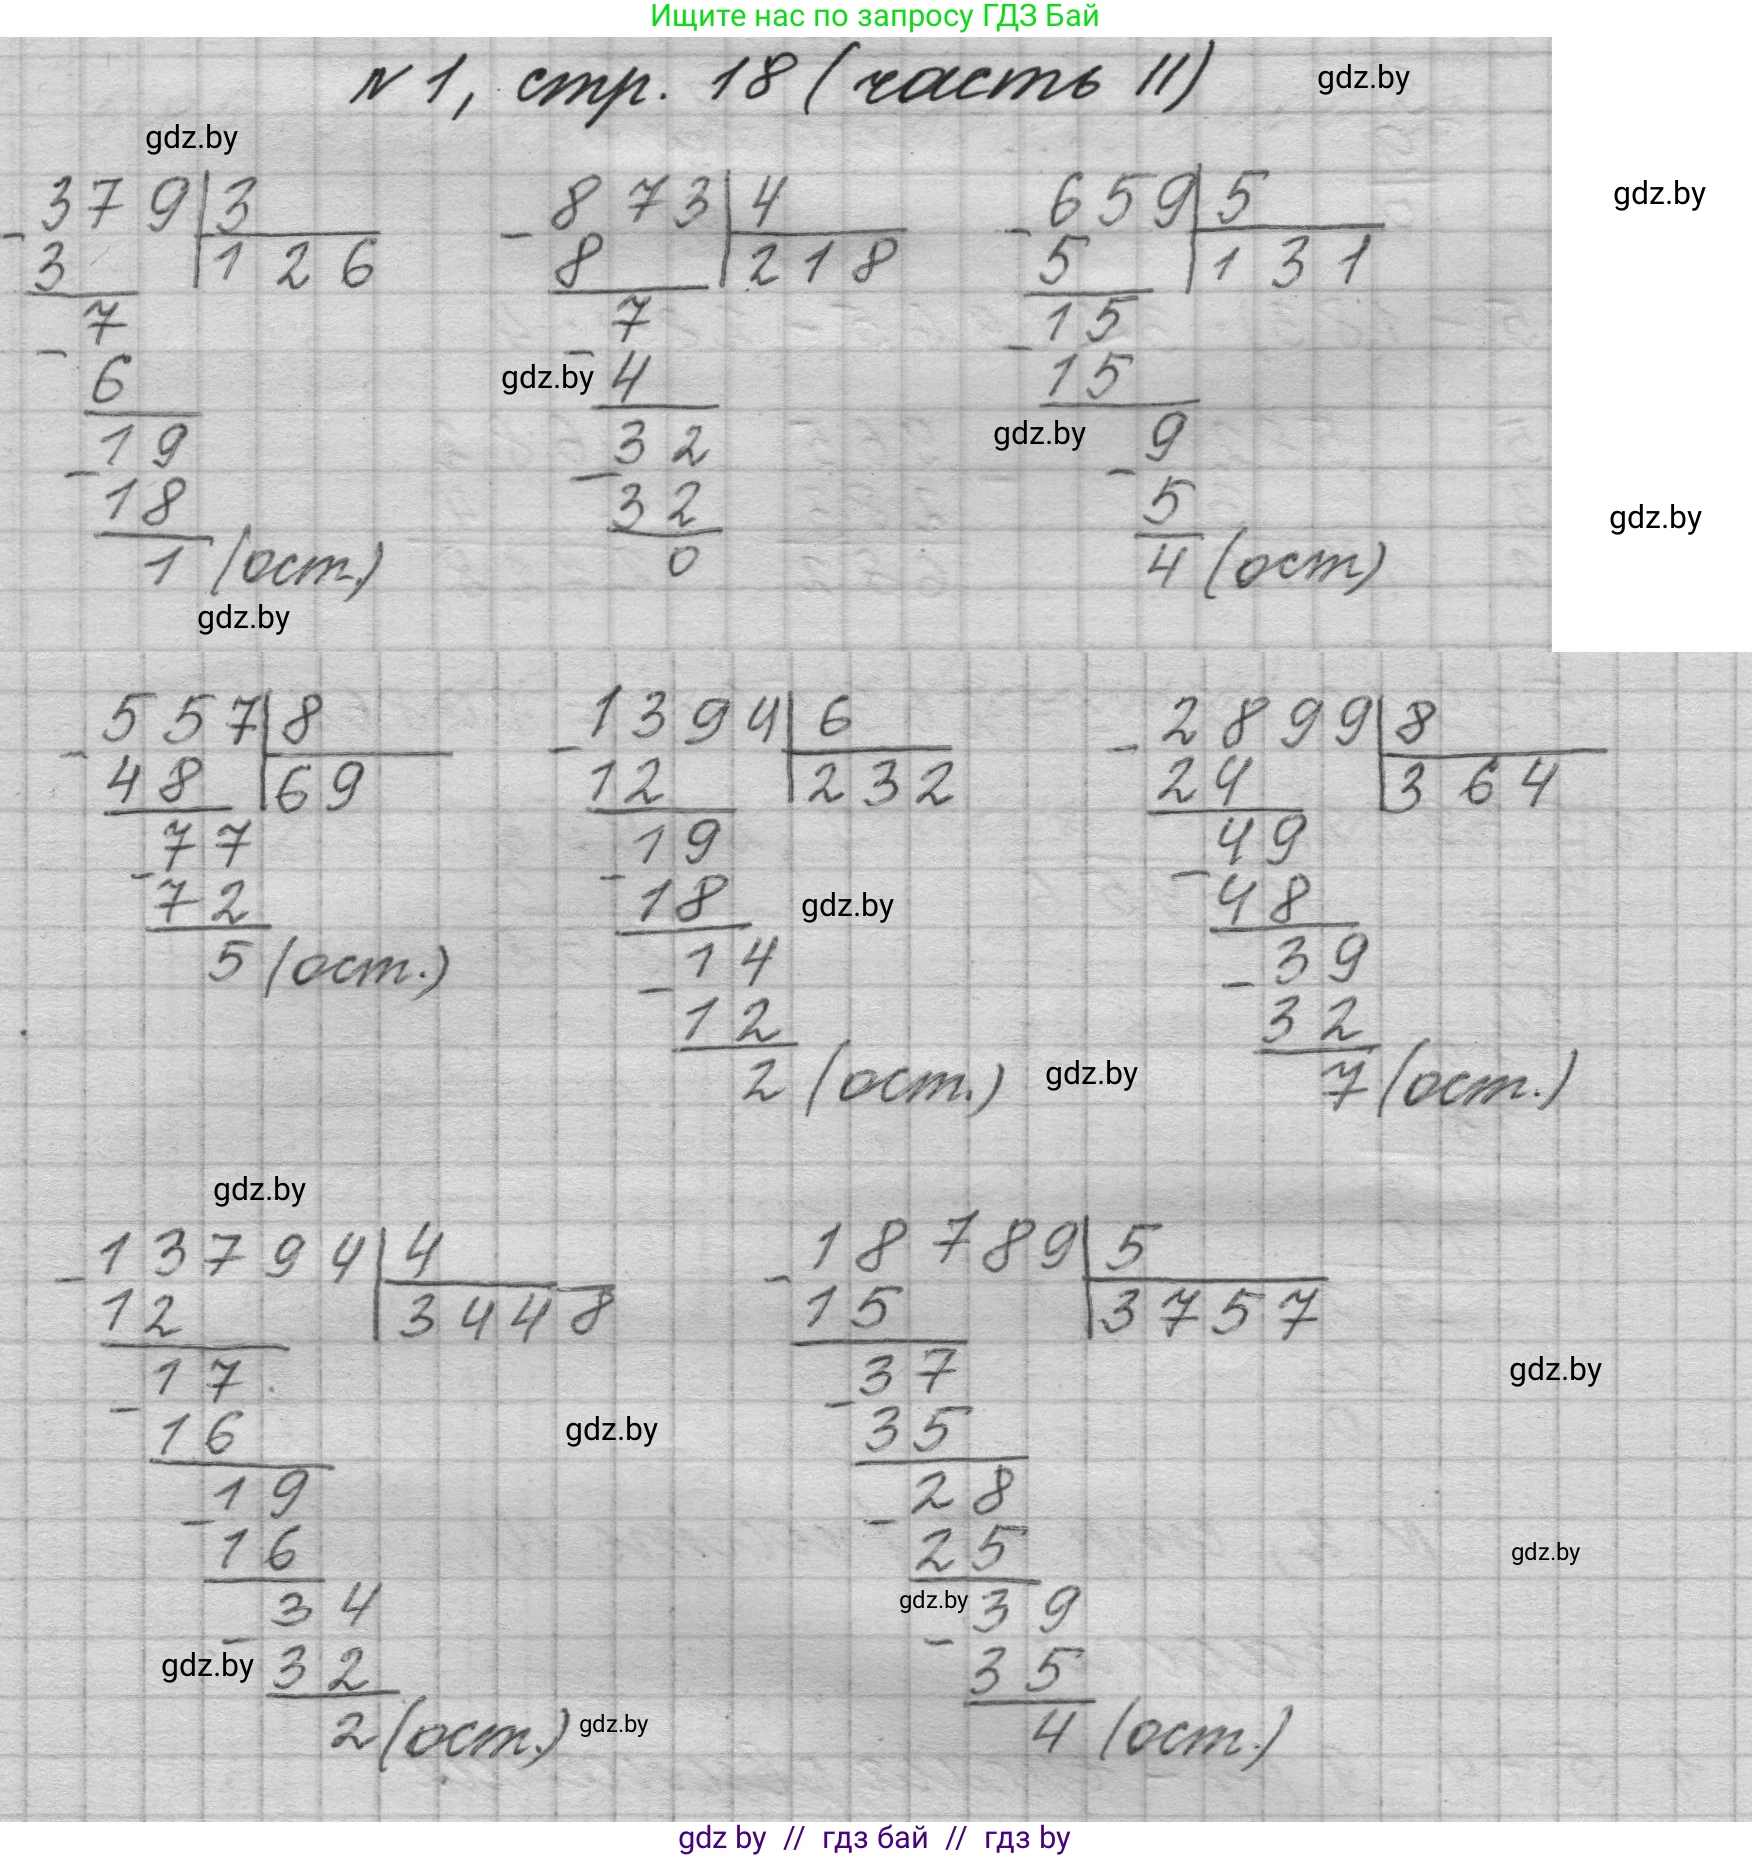 Ищите нас по запросу ГДЗ Бай
N 1, стр. 18 (часть II)
gdz.by
gdz.by
gdz.by
379 3 873 4 659 5
3 126 8 218 5 131
7 7 15
6 gdz.by 4 15
gdz.by 9
19 32
18 32 5
gdz.by
1 (ост.) 0 4 (ост)
gdz.by
557 8 1394 6 2899 8
48 69 12 232 24 364
77 19 49
72 18 gdz.by 48
5 (ост.) 14 39
12 32
2 (ост.) gdz.by 7 (ост.)
gdz.by
13794 4 18789 5
12 3448 15 3757
17 37 gdz.by
16 gdz.by 35
19 28
16 25 gdz.by
34 gdz.by 39
gdz.by 32 35
2 (ост.) gdz.by 4 (ост.)
gdz by // гдз бай // гдз by